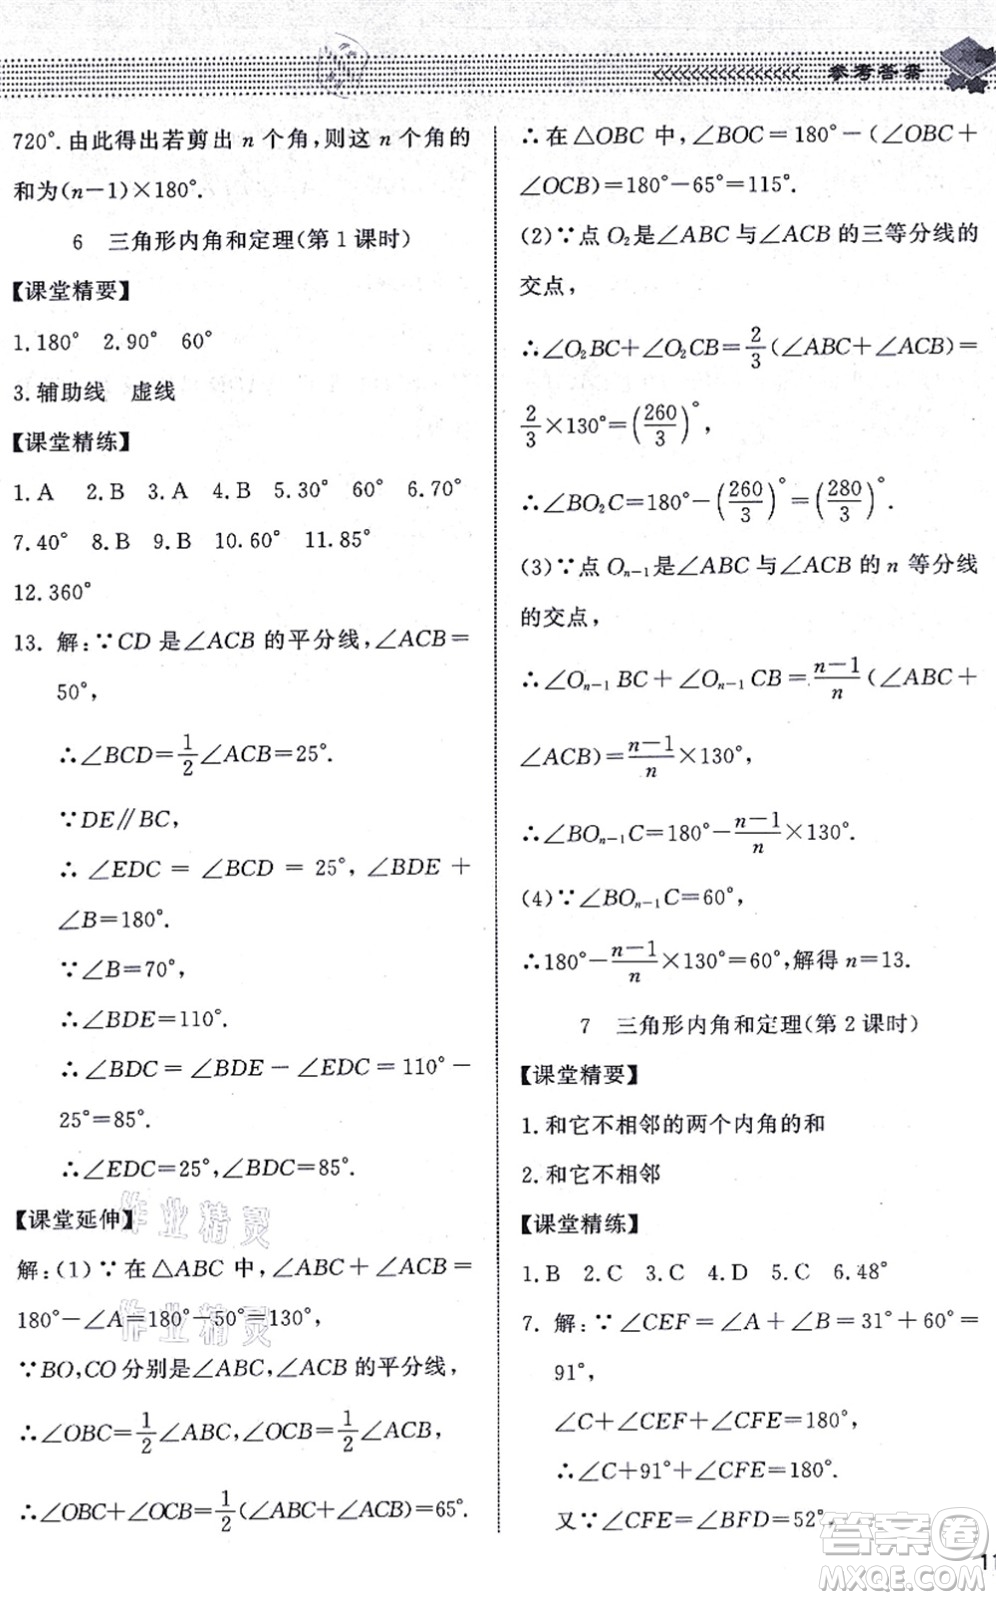 参考答案
720°.由此得出若剪出 n 个角,则这 n 个角的
和为(n－1)×180°.
6 三角形内角和定理(第 1 课时)
【课堂精要】
1.180° 2.90° 60°
3.辅助线 虚线
【课堂精练】
1.A 2.B 3.A 4.B 5.30° 60° 6.70°
7.40° 8.B 9.B 10.60° 11.85°
12.360°
13. 解:∵CD 是∠ACB 的平分线,∠ACB＝
50°,
∴∠BCD＝1/2∠ACB＝25°.
∵DE∥BC,
∴∠EDC＝∠BCD＝25°,∠BDE＋
∠B＝180°.
∵∠B＝70°,
∴∠BDE＝110°.
∴∠BDC＝∠BDE－∠EDC＝110°－
25°＝85°.
∴∠EDC＝25°,∠BDC＝85°.
【课堂延伸】
解:(1)∵在△ABC 中,∠ABC＋∠ACB＝
180°－∠A＝180°－50°＝130°,
∵BO,CO 分别是∠ABC,∠ACB 的平分线,
∴∠OBC＝1/2∠ABC,∠OCB＝1/2∠ACB,
∴∠OBC＋∠OCB＝1/2(∠ABC＋∠ACB)＝65°.
∴在△OBC 中,∠BOC＝180°－(∠OBC＋
∠OCB)＝180°－65°＝115°.
(2)∵点 O₂是∠ABC 与∠ACB 的三等分线的
交点,
∴∠O₂BC＋∠O₂CB＝2/3(∠ABC＋∠ACB)＝
2/3×130°＝(260/3)°,
∴∠BO₂C＝180°－(260/3)°＝(280/3)°.
(3)∵点 Oₙ₋₁是∠ABC 与∠ACB 的 n 等分线
的交点,
∴∠Oₙ₋₁BC＋∠Oₙ₋₁CB＝(n－1)/n(∠ABC＋
∠ACB)＝(n－1)/n×130°,
∴∠BOₙ₋₁C＝180°－(n－1)/n×130°.
(4)∵∠BOₙ₋₁C＝60°,
∴180°－(n－1)/n×130°＝60°,解得 n＝13.
7 三角形内角和定理(第 2 课时)
【课堂精要】
1.和它不相邻的两个内角的和
2.和它不相邻
【课堂精练】
1.B 2.C 3.C 4.D 5.C 6.48°
7. 解:∵∠CEF＝∠A＋∠B＝31°＋60°＝
91°,
∠C＋∠CEF＋∠CFE＝180°,
∴∠C＋91°＋∠CFE＝180°.
又∵∠CFE＝∠BFD＝52°,
作业精灵
作业精灵
答案圈
MXQE.COM
11